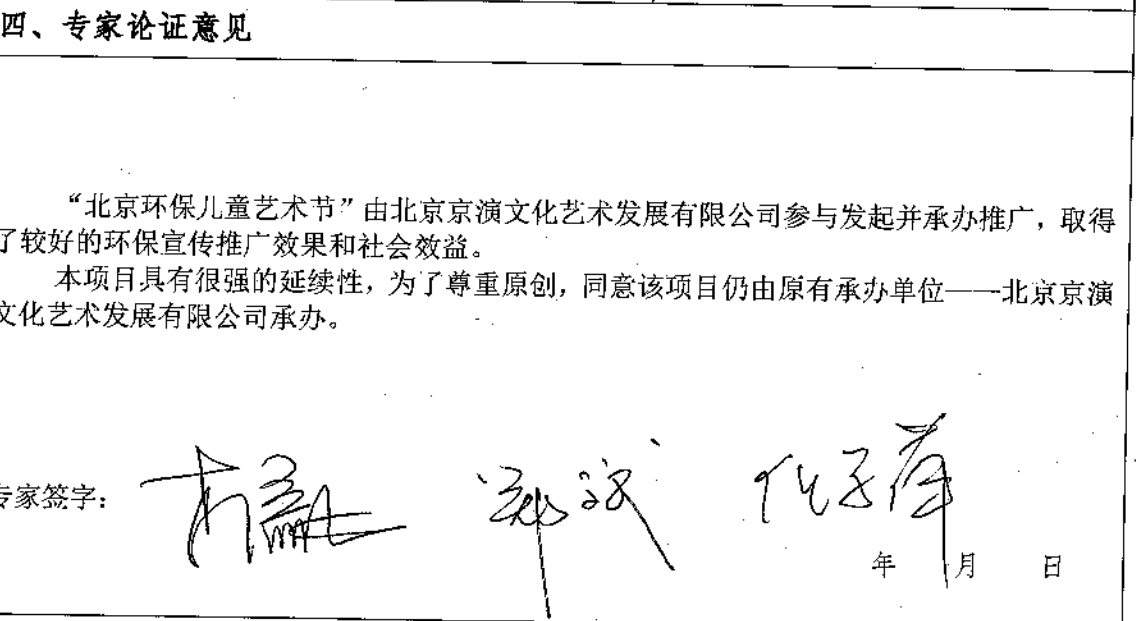 四、专家论证意见
“北京环保儿童艺术节”由北京京演文化艺术发展有限公司参与发起并承办推广，取得
了较好的环保宣传推广效果和社会效益。
本项目具有很强的延续性，为了尊重原创，同意该项目仍由原有承办单位——北京京演
文化艺术发展有限公司承办。
专家签字：
年 月 日